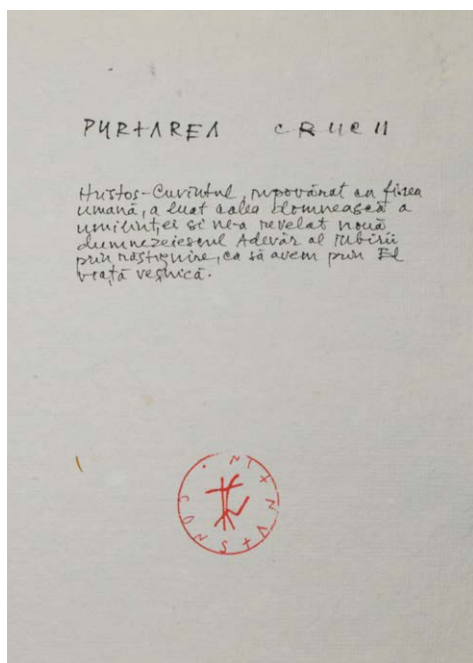 PURTAREA CRUCII
Hristos-Cuvîntul, împovărat cu firea
umană, a luat calea domnească a
umilinței si ne-a revelat nouă
dumnezeiescul Adevăr al Iubirii
prin răstignire, ca să avem prin El
viață veșnică.